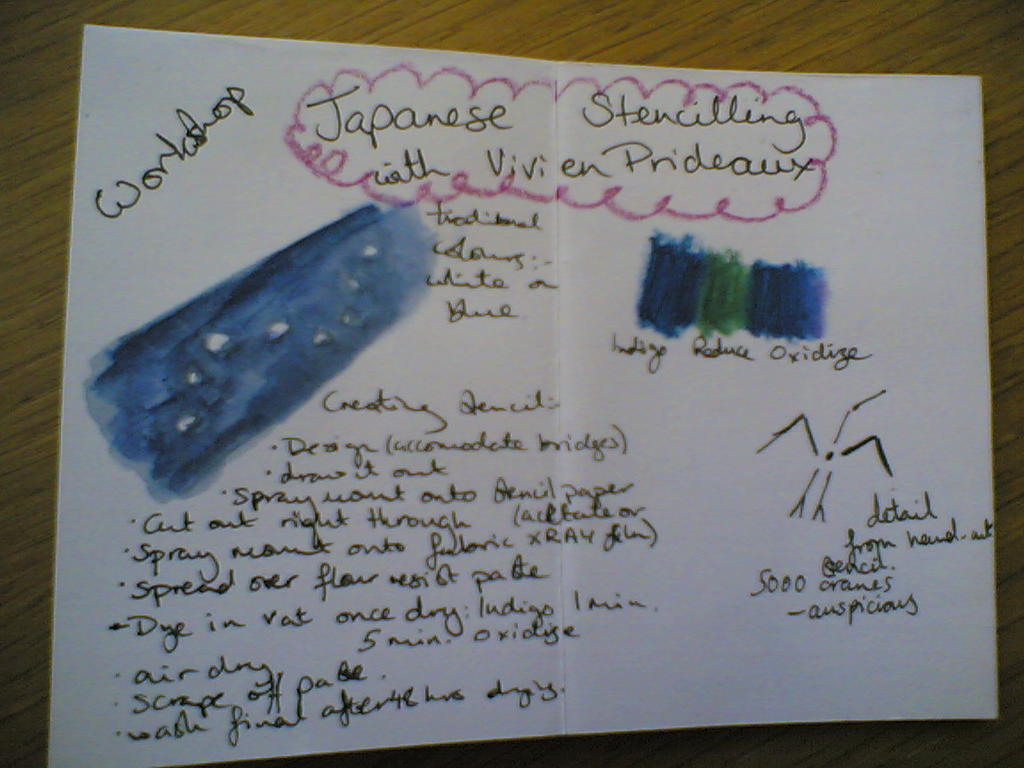 Workshop
Japanese Stencilling
with Vivien Prideaux
traditional
colours:-
white on
blue
Indigo Reduce Oxidize
Creating Stencil:-
• Design (accomodate bridges)
• draw it out
• Spray mount onto stencil paper
(acetate or
XRAY film)
• Cut out right through
• Spray mount onto fabric
• Spread over flour resist paste
• Dye in vat once dry: Indigo 1 min.
5 min. oxidize
• air dry
• Scrape off paste.
• wash final after 48 hrs drying.
detail
from hand-cut
stencil.
5000 cranes
- auspicious